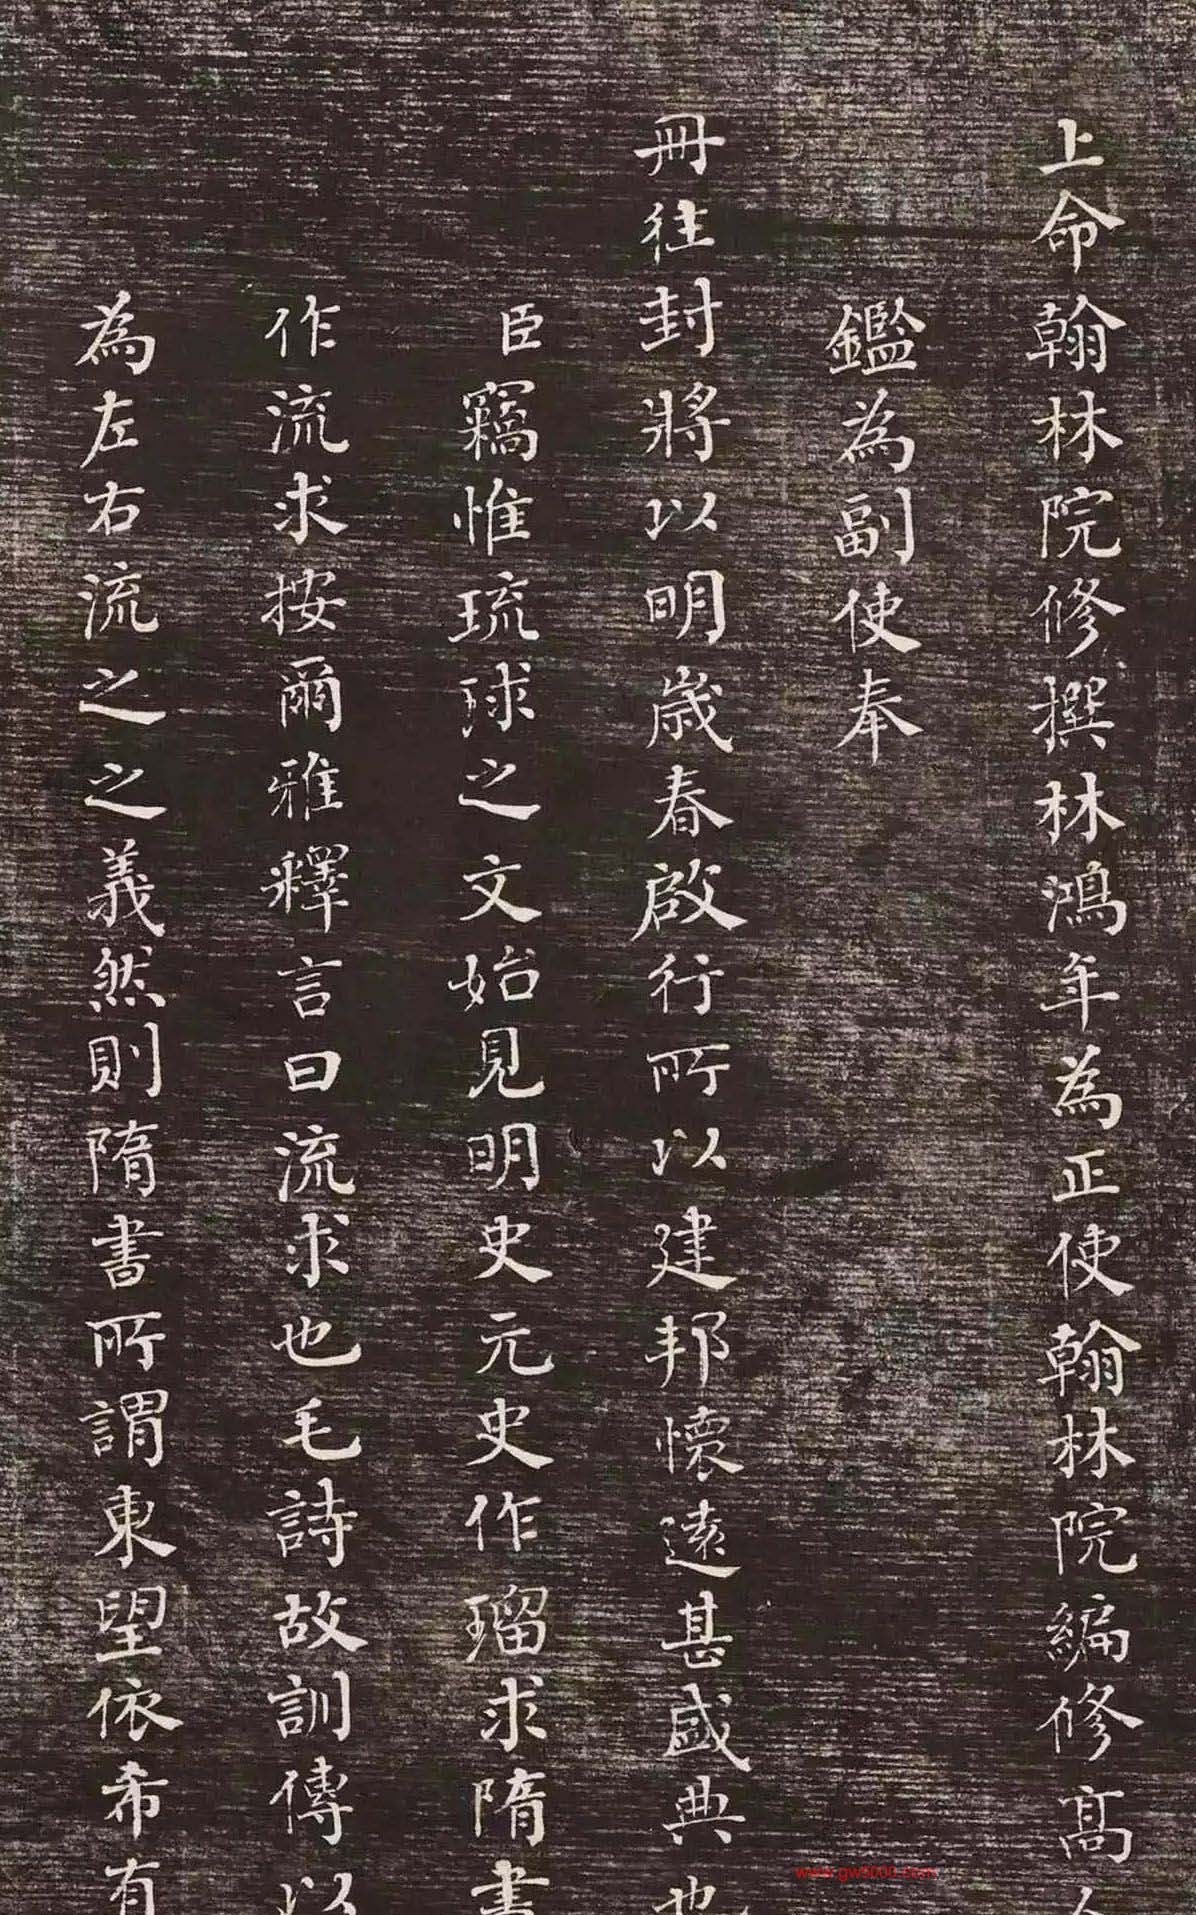 上命翰林院修撰林鴻年為正使翰林院編修髙人
鑑為副使奉
冊往封將以明歲春啟行所以建邦懷遠甚盛典也
臣竊惟琉球之文始見明史元史作瑠求隋書
作流求按爾雅釋言曰流求也毛詩故訓傳以
為左右流之之義然則隋書所謂東望依希有